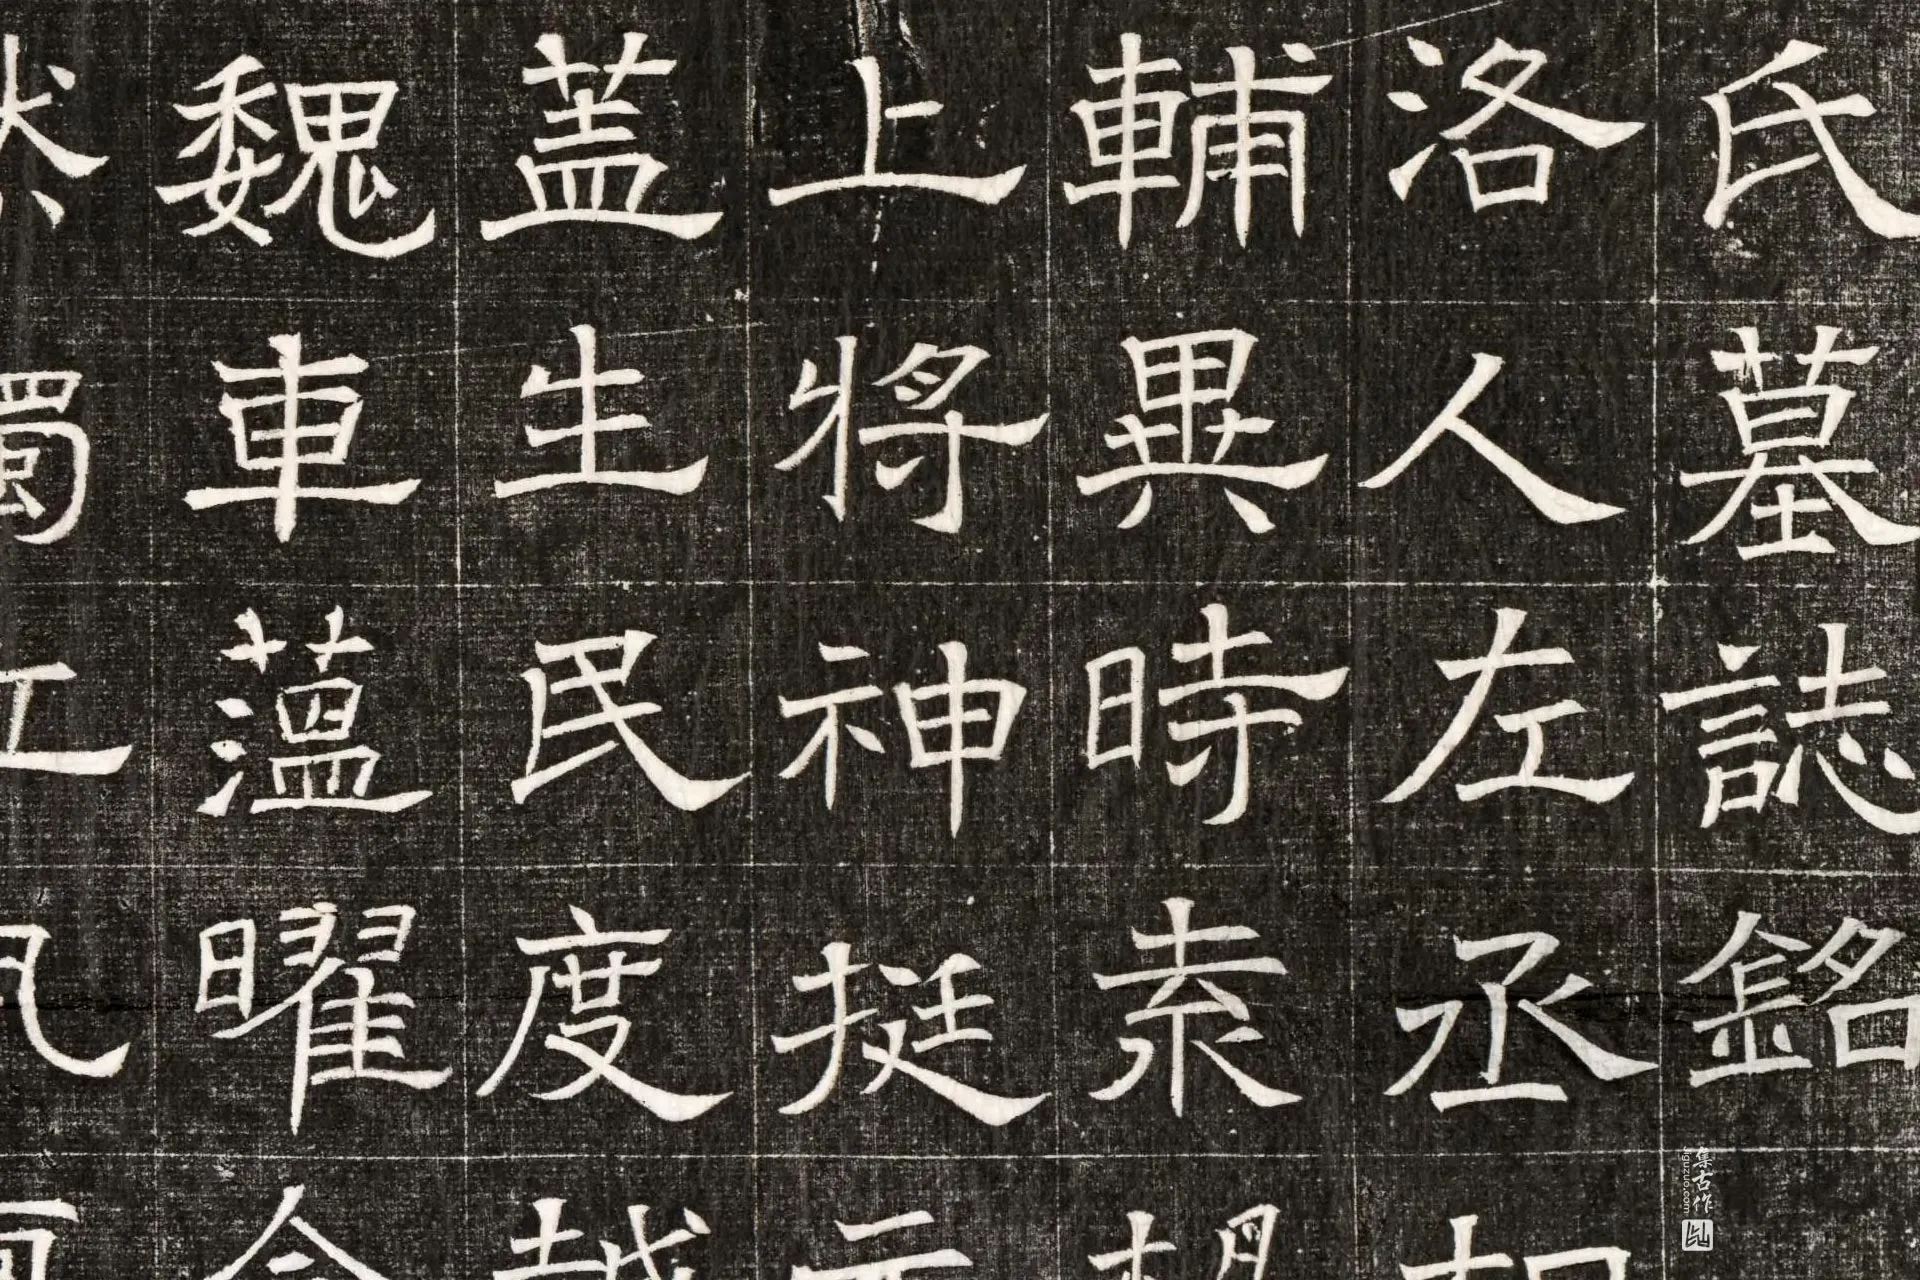 氏墓誌銘
洛人左丞相
輔異時素
上將神挺元
蓋生民度越
魏車薀曜含
集古作
jiguzuo.com